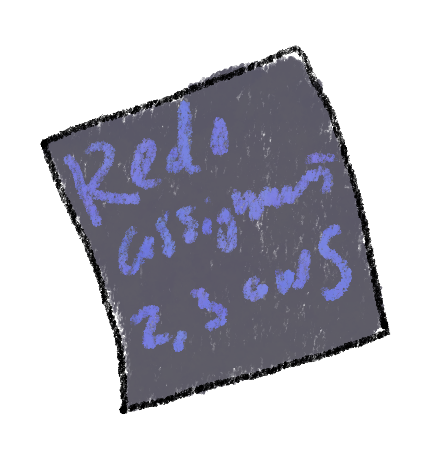 Redo
assignments
2, 3 and 5